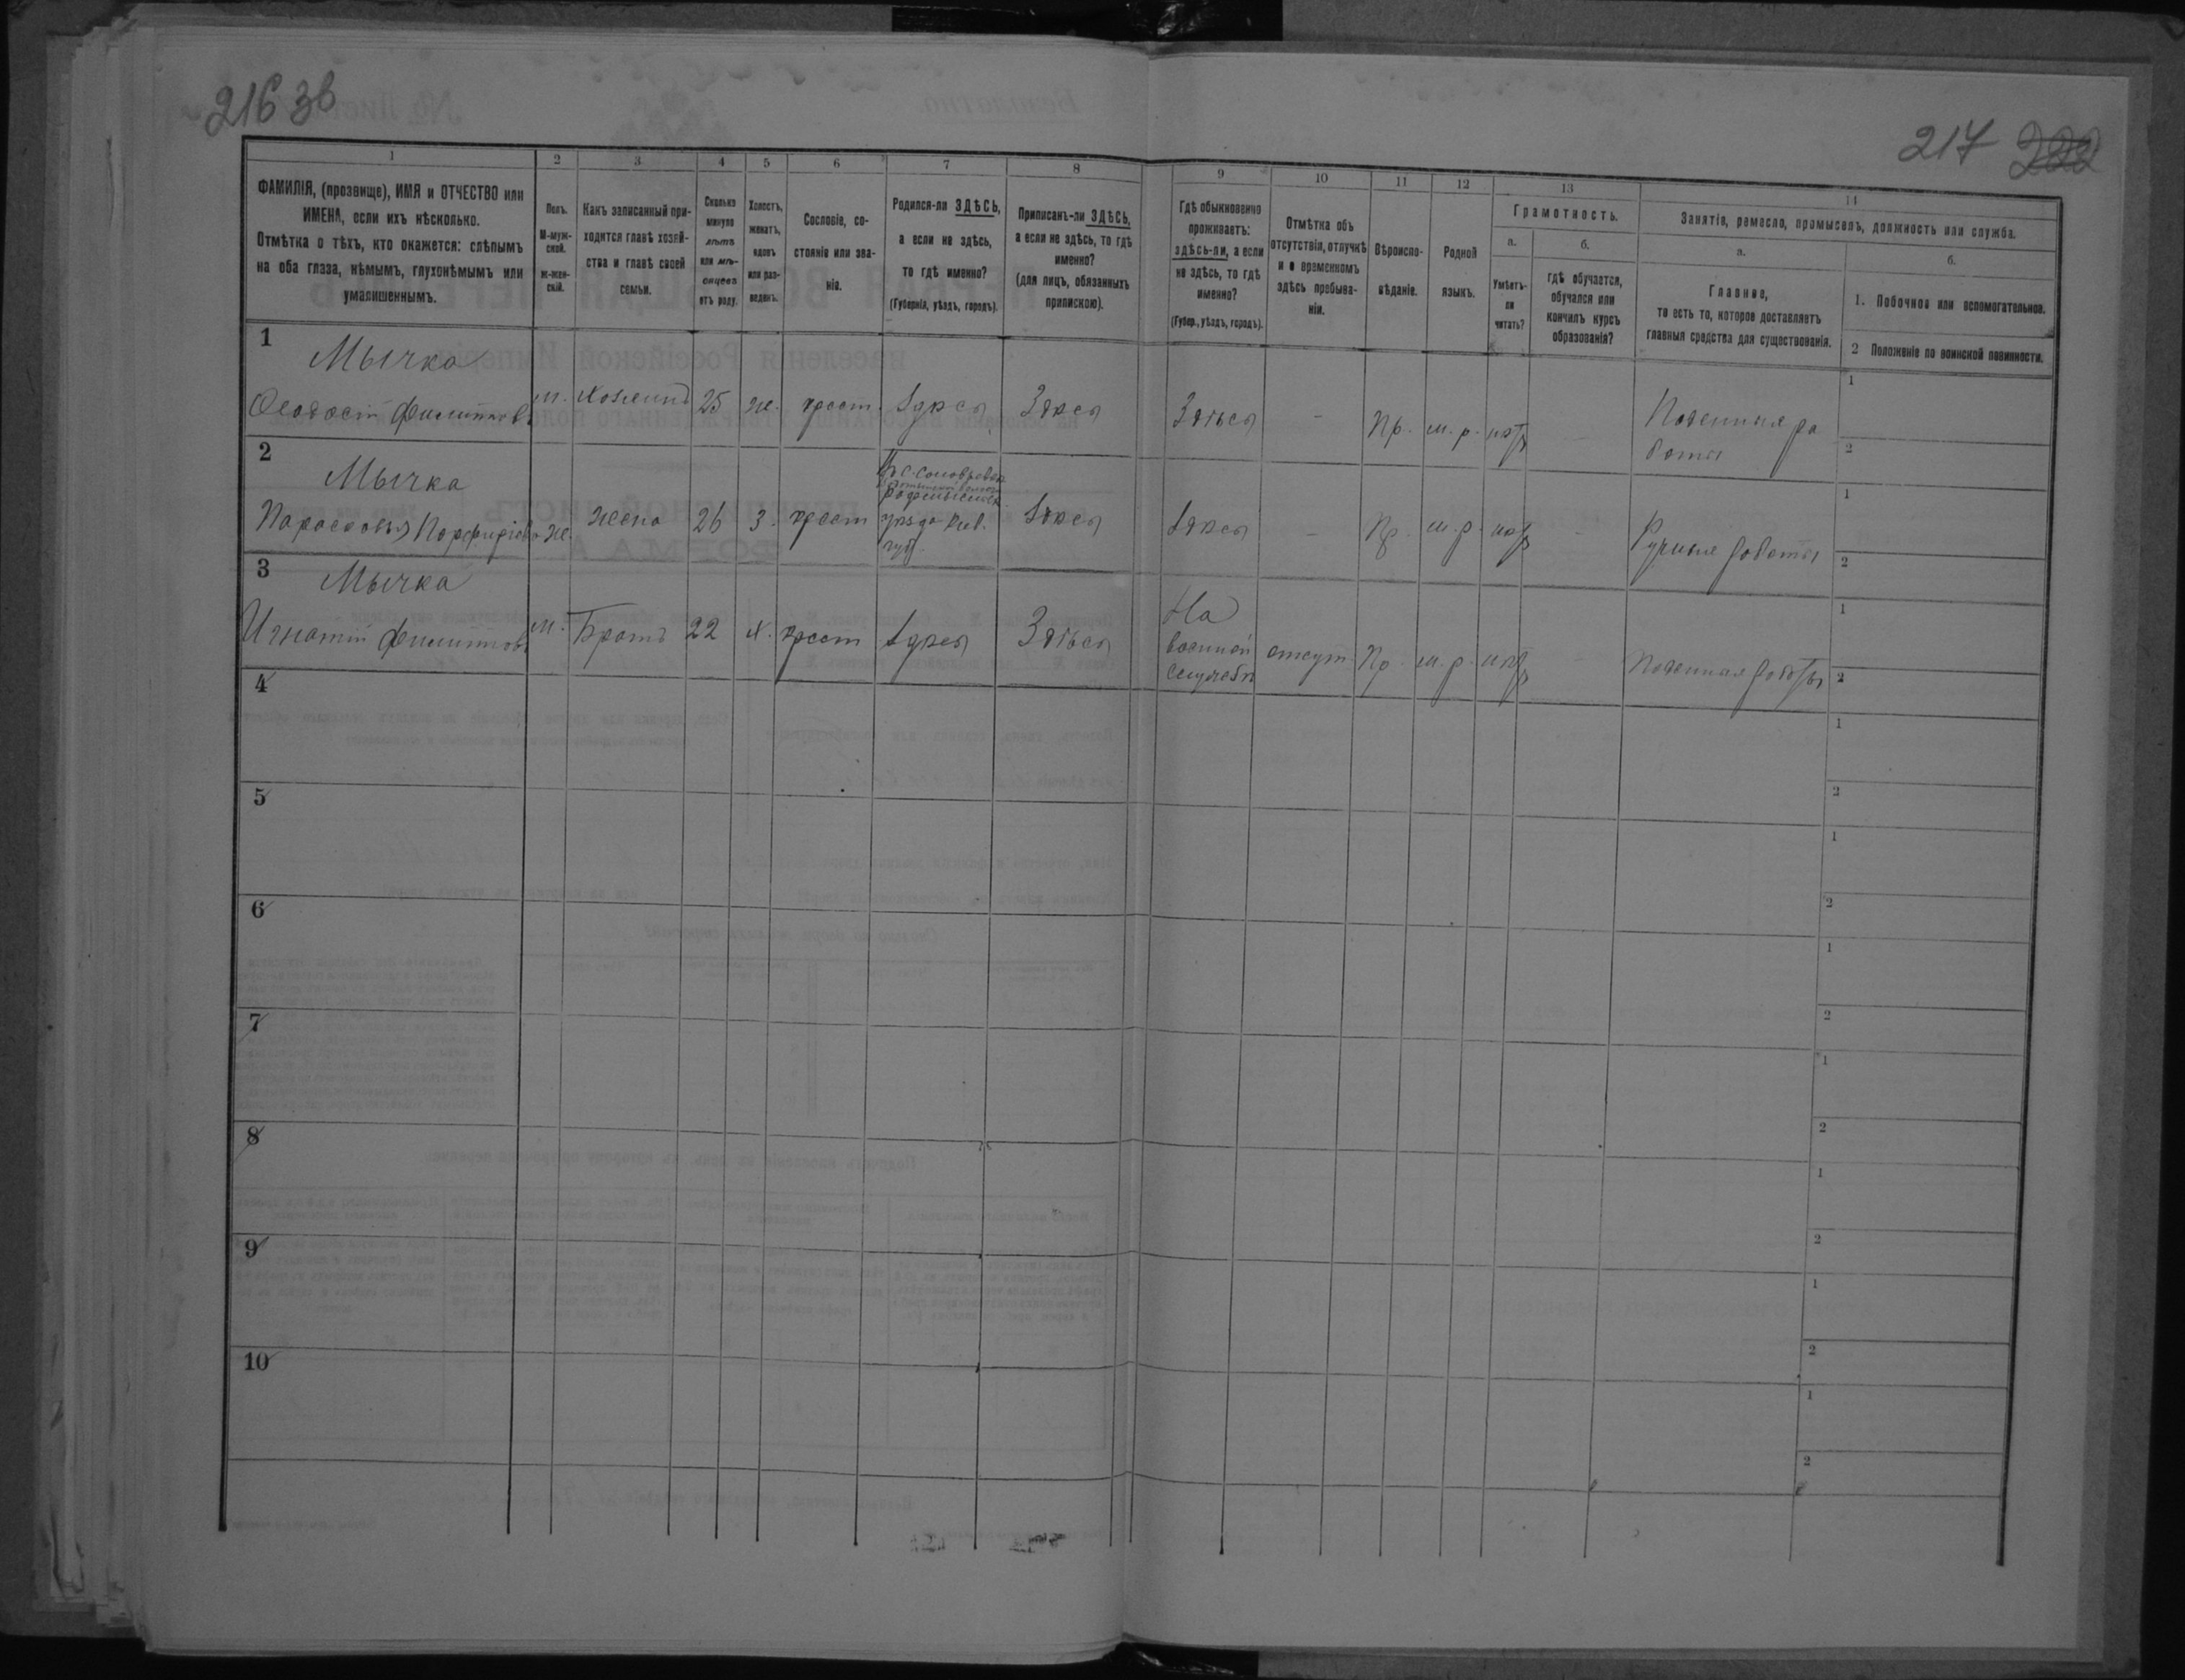 216 зв
217 222
1
2
3
4
5
6
7
8
9
10
11
12
13
14
ФАМИЛІЯ, (прозвище), ИМЯ и ОТЧЕСТВО или
ИМЕНА, если ихъ нѣсколько.
Отмѣтка о тѣхъ, кто окажется: слѣпымъ
на оба глаза, нѣмымъ, глухонѣмымъ или
умалишеннымъ.
Полъ.
М-муж-
ской.
ж-жен-
скій.
Какъ записанный при-
ходится главѣ хозяй-
ства и главѣ своей
семьи.
Сколько
минуло
лѣтъ
или мѣ-
сяцевъ
отъ роду.
Холостъ,
женатъ,
вдовъ
или раз-
веденъ.
Сословіе, со-
стояніе или зва-
ніе.
Родился-ли ЗДѢСЬ,
а если не здѣсь,
то гдѣ именно?
(Губернія, уѣздъ, городъ).
Приписанъ-ли ЗДѢСЬ,
а если не здѣсь, то гдѣ
именно?
(для лицъ, обязанныхъ
припискою).
Гдѣ обыкновенно
проживаетъ:
здѣсь-ли, а если
не здѣсь, то гдѣ
именно?
(Губер., уѣздъ, городъ).
Отмѣтка объ
отсутствіи, отлучкѣ
и о временномъ
здѣсь пребыва-
ніи.
Вѣроиспо-
вѣданіе.
Родной
языкъ.
Грамотность.
а.
Умѣетъ-
ли
читать?
б.
гдѣ обучается,
обучался или
кончилъ курсъ
образованія?
Занятіе, ремесло, промыселъ, должность или служба.
а.
Главное,
то есть то, которое доставляетъ
главныя средства для существованія.
б.
1. Побочное или вспомогательное.
2 Положеніе по воинской повинности.
1
Мычка
Ѳеодосій Филиппов
м. Хозяинъ 25 ж. крест. Здѣсь Здѣсь
Здѣсь - Пр. м.р. нѣтъ -
Поденныя ра
боты
1
2
2
Мычка
Парасковья Порфиріева
ж. жена 26 з. крест
уѣзда Кіев.
губ.
Здѣсь
Здѣсь - Пр. м.р. нѣтъ - Ручныя работы
1
2
3
Мычка
Игнатій Филиппов
м. Братъ 22 х. крест Здѣсь Здѣсь
На
военной
службѣ
отсут. Пр. м.р. нѣтъ - Поденная работы
1
2
4
1
2
5
1
2
6
1
2
7
1
2
8
1
2
9
1
2
10
1
2